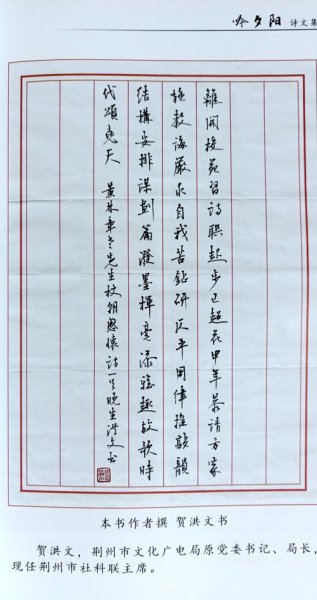 吟夕阳 诗文集
離開校苑習詩聯起步已超花甲年恭請方家
施教誨嚴求自我苦鉆研仄平用律推敲韻
結構安排謀劃篇潑墨揮毫添雅趣放歌時
代頌堯天 黄林章老先生杖朝感懷詩一首晚生洪文書
本书作者撰 贺洪文书
贺洪文，荆州市文化广电局原党委书记、局长，
现任荆州市社科联主席。